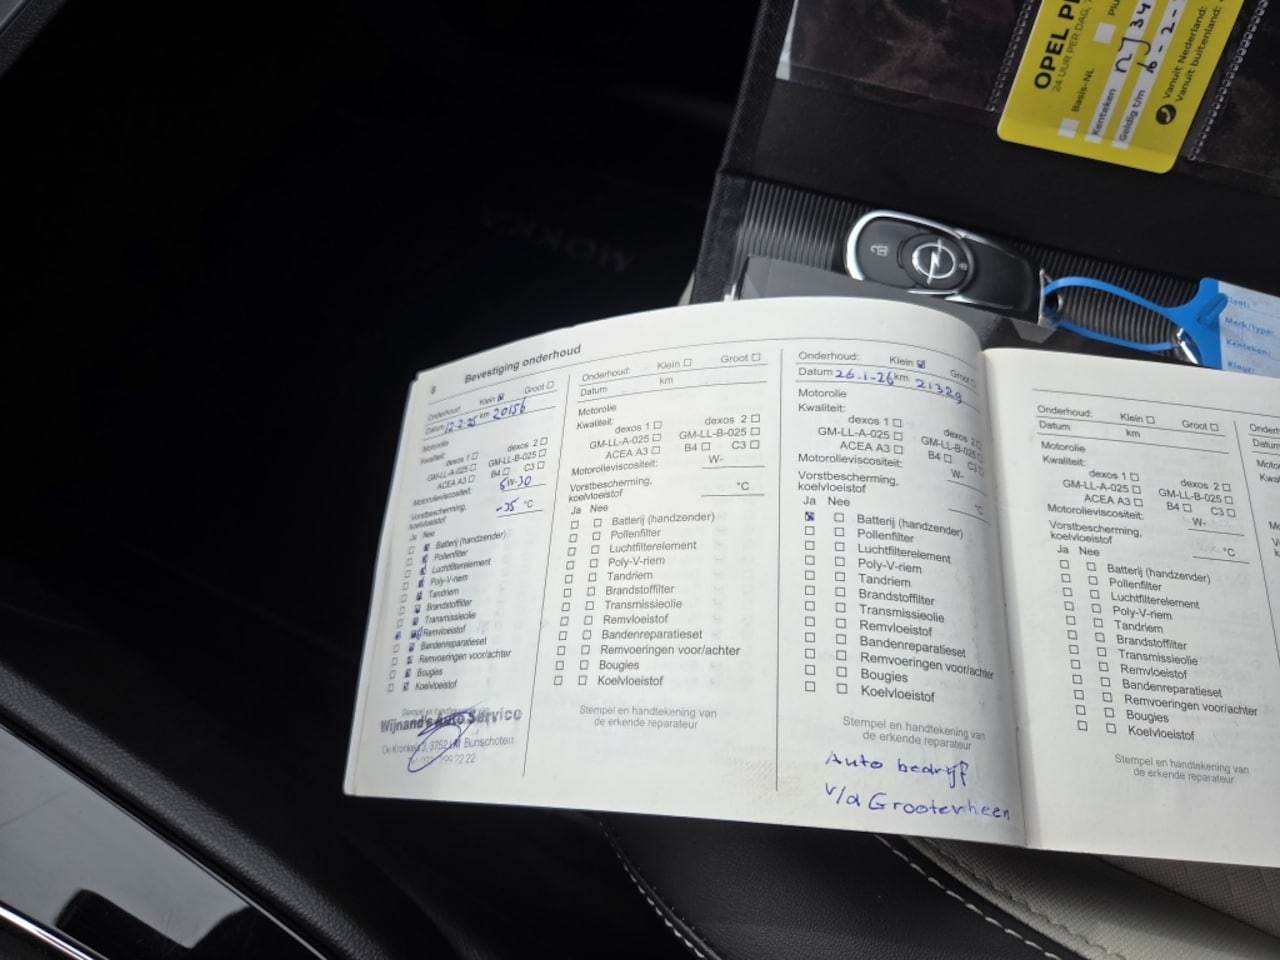 OPEL
24 UUR PER DAG, 7
Basis-NL
Kenteken
Geldig t/m
Vanuit Nederland:
Vanuit buitenland:
MOKKA
Klant:
Merk/type:
Kenteken:
Kleur:
8 Bevestiging onderhoud
Onderhoud: Klein Groot
Datum 12-2-25 km 20156
Motorolie
Kwaliteit:
dexos 1 dexos 2
GM-LL-A-025 GM-LL-B-025
ACEA A3 B4 C3
Motorolieviscositeit: 5W-30
Vorstbescherming,
koelvloeistof -35 °C
Ja Nee
Batterij (handzender)
Pollenfilter
Luchtfilterelement
Poly-V-riem
Tandriem
Brandstoffilter
Transmissieolie
Remvloeistof
Bandenreparatieset
Remvoeringen voor/achter
Bougies
Koelvloeistof
Wijnand's Auto Service
Bunschoten
Onderhoud: Klein Groot
Datum km
Motorolie
Kwaliteit:
dexos 1 dexos 2
GM-LL-A-025 GM-LL-B-025
ACEA A3 B4 C3
Motorolieviscositeit: W-
Vorstbescherming,
koelvloeistof °C
Ja Nee
Batterij (handzender)
Pollenfilter
Luchtfilterelement
Poly-V-riem
Tandriem
Brandstoffilter
Transmissieolie
Remvloeistof
Bandenreparatieset
Remvoeringen voor/achter
Bougies
Koelvloeistof
Stempel en handtekening van
de erkende reparateur
Onderhoud: Klein Groot
Datum 26-1-26 km 21329
Motorolie
Kwaliteit:
dexos 1 dexos 2
GM-LL-A-025 GM-LL-B-025
ACEA A3 B4 C3
Motorolieviscositeit: W-
Vorstbescherming,
koelvloeistof °C
Ja Nee
Batterij (handzender)
Pollenfilter
Luchtfilterelement
Poly-V-riem
Tandriem
Brandstoffilter
Transmissieolie
Remvloeistof
Bandenreparatieset
Remvoeringen voor/achter
Bougies
Koelvloeistof
Stempel en handtekening van
de erkende reparateur
Auto bedrijf
v/d Grootevheen
Onderhoud: Klein Groot
Datum km
Motorolie
Kwaliteit:
dexos 1 dexos 2
GM-LL-A-025 GM-LL-B-025
ACEA A3 B4 C3
Motorolieviscositeit: W-
Vorstbescherming,
koelvloeistof °C
Ja Nee
Batterij (handzender)
Pollenfilter
Luchtfilterelement
Poly-V-riem
Tandriem
Brandstoffilter
Transmissieolie
Remvloeistof
Bandenreparatieset
Remvoeringen voor/achter
Bougies
Koelvloeistof
Stempel en handtekening van
de erkende reparateur